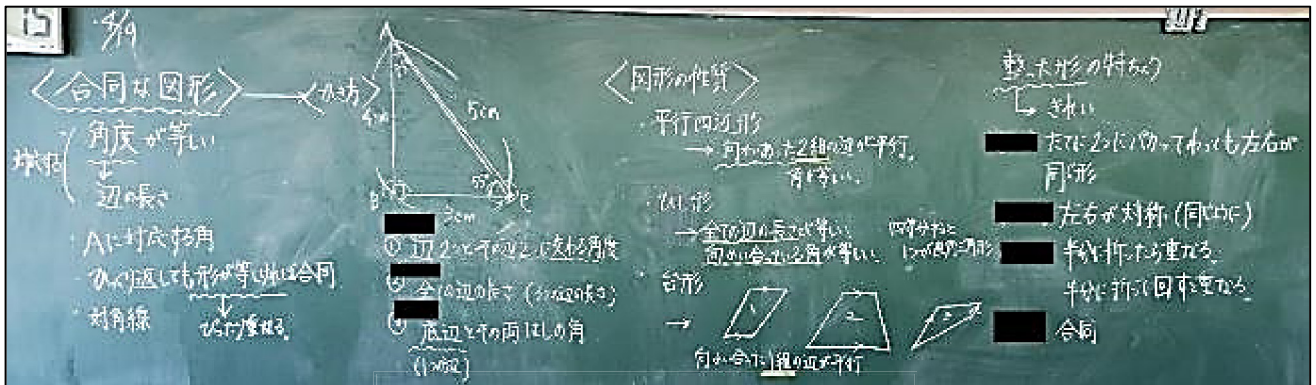 15
4/19
〈合同な図形〉
〈かき方〉
対応する
角度が等しい
↓
辺の長さ
・Aに対応する角
・ひっくり返しても形が等しければ合同
↓
ぴったり重なる。
・対角線
A
4cm
5cm
B
C
3cm
① 辺2つとその辺2に交わる角度
② 全ての辺の長さ(3つの辺の長さ)
③ 底辺とその両はしの角
(1つの辺)
〈図形の性質〉
・平行四辺形
→ 向かいあった2組の辺が平行。
角が等しい。
・ひし形
→全ての辺の長さが等しい
向かい合っている角が等しい。
・台形
→
1
2
3
向かい合った1組の辺が平行
整った形の特ちょう
きれい
たてに2つにパカってわっても左右が
同じ形
左右が対称(同じように)
半分に折ったら重なる。
半分に折って回すと重なる。
合同